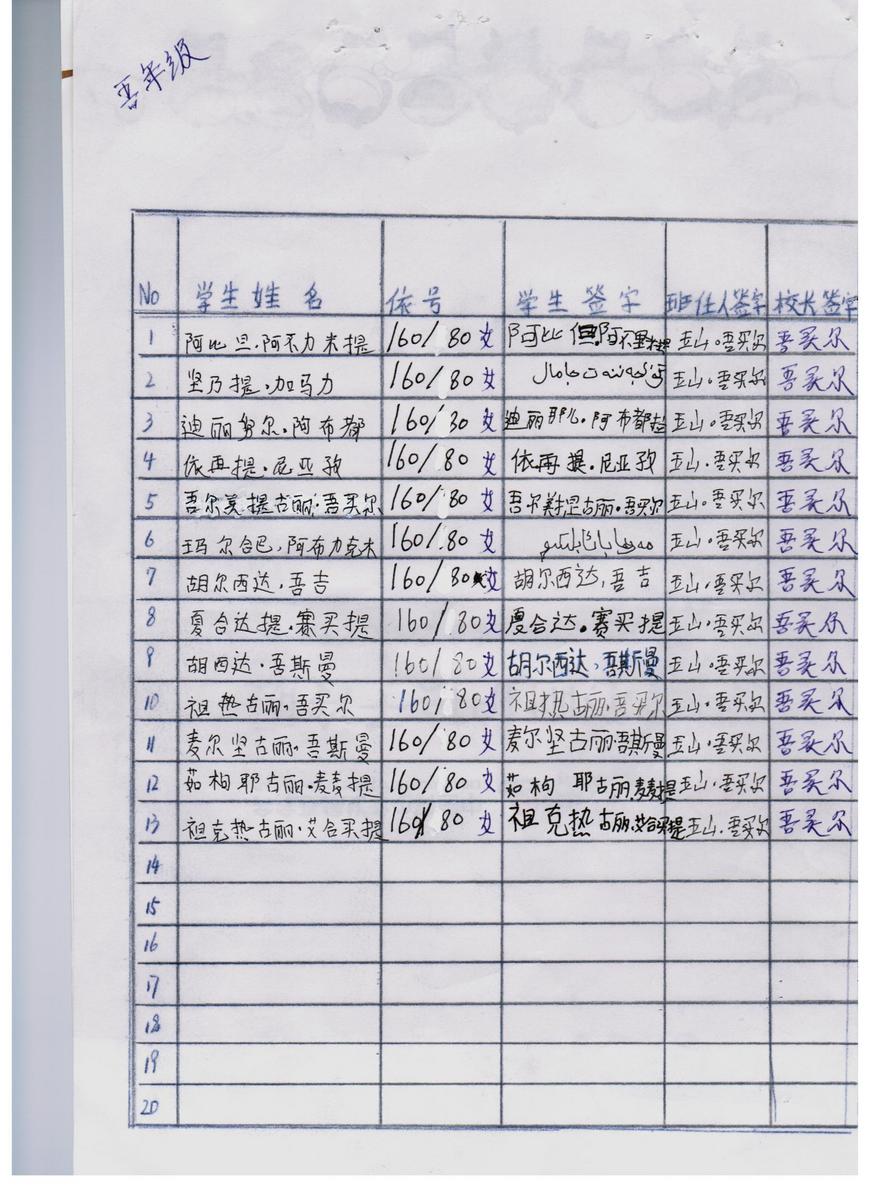 年级
No 学生姓名 依号 学生签字 班任人签字 校长签字
1 阿比旦.阿不力米提 160/80女 阿比但.阿不里米提 玉山.吾买尔 吾买尔
2 坚乃提.加马力 160/80女 玉山.吾买尔 吾买尔
3 迪丽努尔.阿布都 160/80女 迪丽耶儿.阿布都 玉山.吾买尔 吾买尔
4 依再提.尼亚孜 160/80女 依再提.尼亚孜 玉山.吾买尔 吾买尔
5 吾尔美提古丽.吾买尔 160/80女 吾尔美提古丽.吾买尔 玉山.吾买尔 吾买尔
6 玛尔合巴.阿布力克木 160/80女 玉山.吾买尔 吾买尔
7 胡尔西达.吾吉 160/80女 胡尔西达.吾吉 玉山.吾买尔 吾买尔
8 夏合达提.赛买提 160/80女 夏合达.赛买提 玉山.吾买尔 吾买尔
9 胡西达.吾斯曼 160/80女 胡尔西达.吾斯曼 玉山.吾买尔 吾买尔
10 祖热古丽.吾买尔 160/80女 祖热古丽.吾买尔 玉山.吾买尔 吾买尔
11 麦尔坚古丽.吾斯曼 160/80女 麦尔坚古丽.吾斯曼 玉山.吾买尔 吾买尔
12 茹枸耶古丽.麦麦提 160/80女 茹枸耶古丽.麦麦提 玉山.吾买尔 吾买尔
13 祖克热古丽.艾合买提 160/80女 祖克热古丽.艾合买提 玉山.吾买尔 吾买尔
14
15
16
17
18
19
20